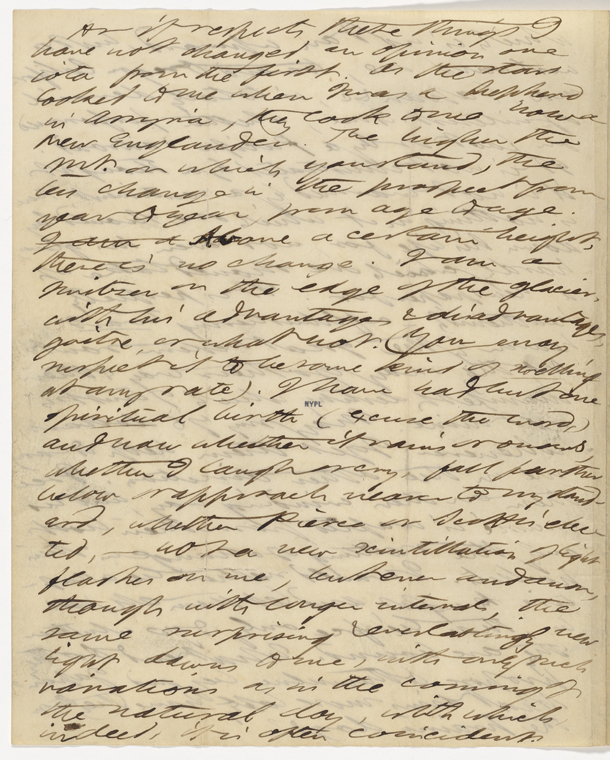 As it respects these things I
have not changed an opinion one
iota from the first. As the stars
looked to me when I was a shepherd
in Assyria, they look to me now a
New Englander. The higher the
Mt. on which you stand, the
less change in the prospect from
year to year, from age to age.
Above a certain height,
there is no change. I am a
Switzer on the edge of the glacier,
with his advantages & disadvantages,
goitre or what not. (You may
suspect it to be some kind of swelling
at any rate). I have had but one
NYPL
spiritual birth (excuse the word,)
and now whether it rains or snows,
whether I laugh or cry, fall farther
below or approach nearer to my stand-
ard, whether Pierce or Scott is elec-
ted, — not a new scintillation of light
flashes on me, but ever and anon,
though with longer interval, the
same surprising & everlastingly new
light dawns to me, with only such
variations as in the coming of
the natural day, with which
indeed, it is often coincident.